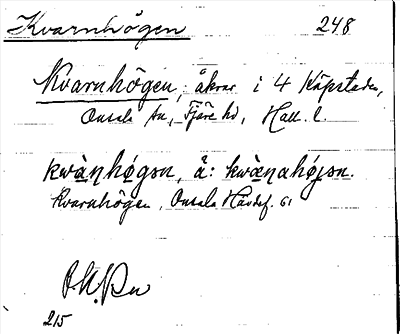 Kvarnhögen 248
Kvarnhögen, åkrar i 4 Köpstaden,
Onsala sn, Fjäre hd, Hall. l.
kwàṇhøgən, å: kwàṇahøjən.
Kvarnhögen, Onsala Hävdef. 61
215